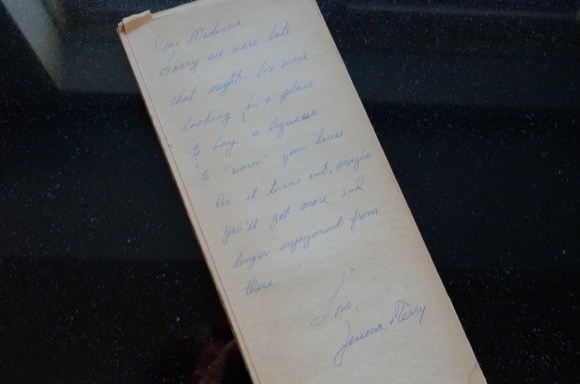 Dear Madonna,
Sorry we were late
that night. We were
looking for a place
to buy a liqueur
to "warm" your house.
As it turns out, maybe
you'll get more and
longer enjoyment from
these.
Love,